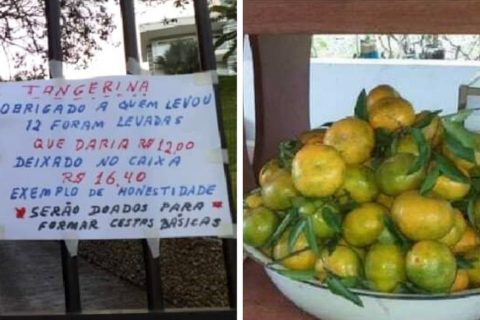 TANGERINA
OBRIGADO A QUEM LEVOU
12 FORAM LEVADAS
QUE DARIA R$ 12,00
DEIXADO NO CAIXA
R$ 16,40
EXEMPLO DE HONESTIDADE
SERÃO DOADOS PARA
FORMAR CESTAS BÁSICAS